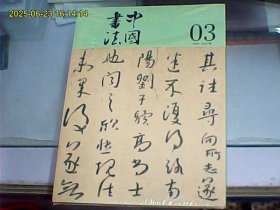 2025-06-23 16:14:14
中國
書法
03
尋向所志遂
迷不復得路南
陽劉子驥高尚士
也聞之欣然規往
未果
遂無